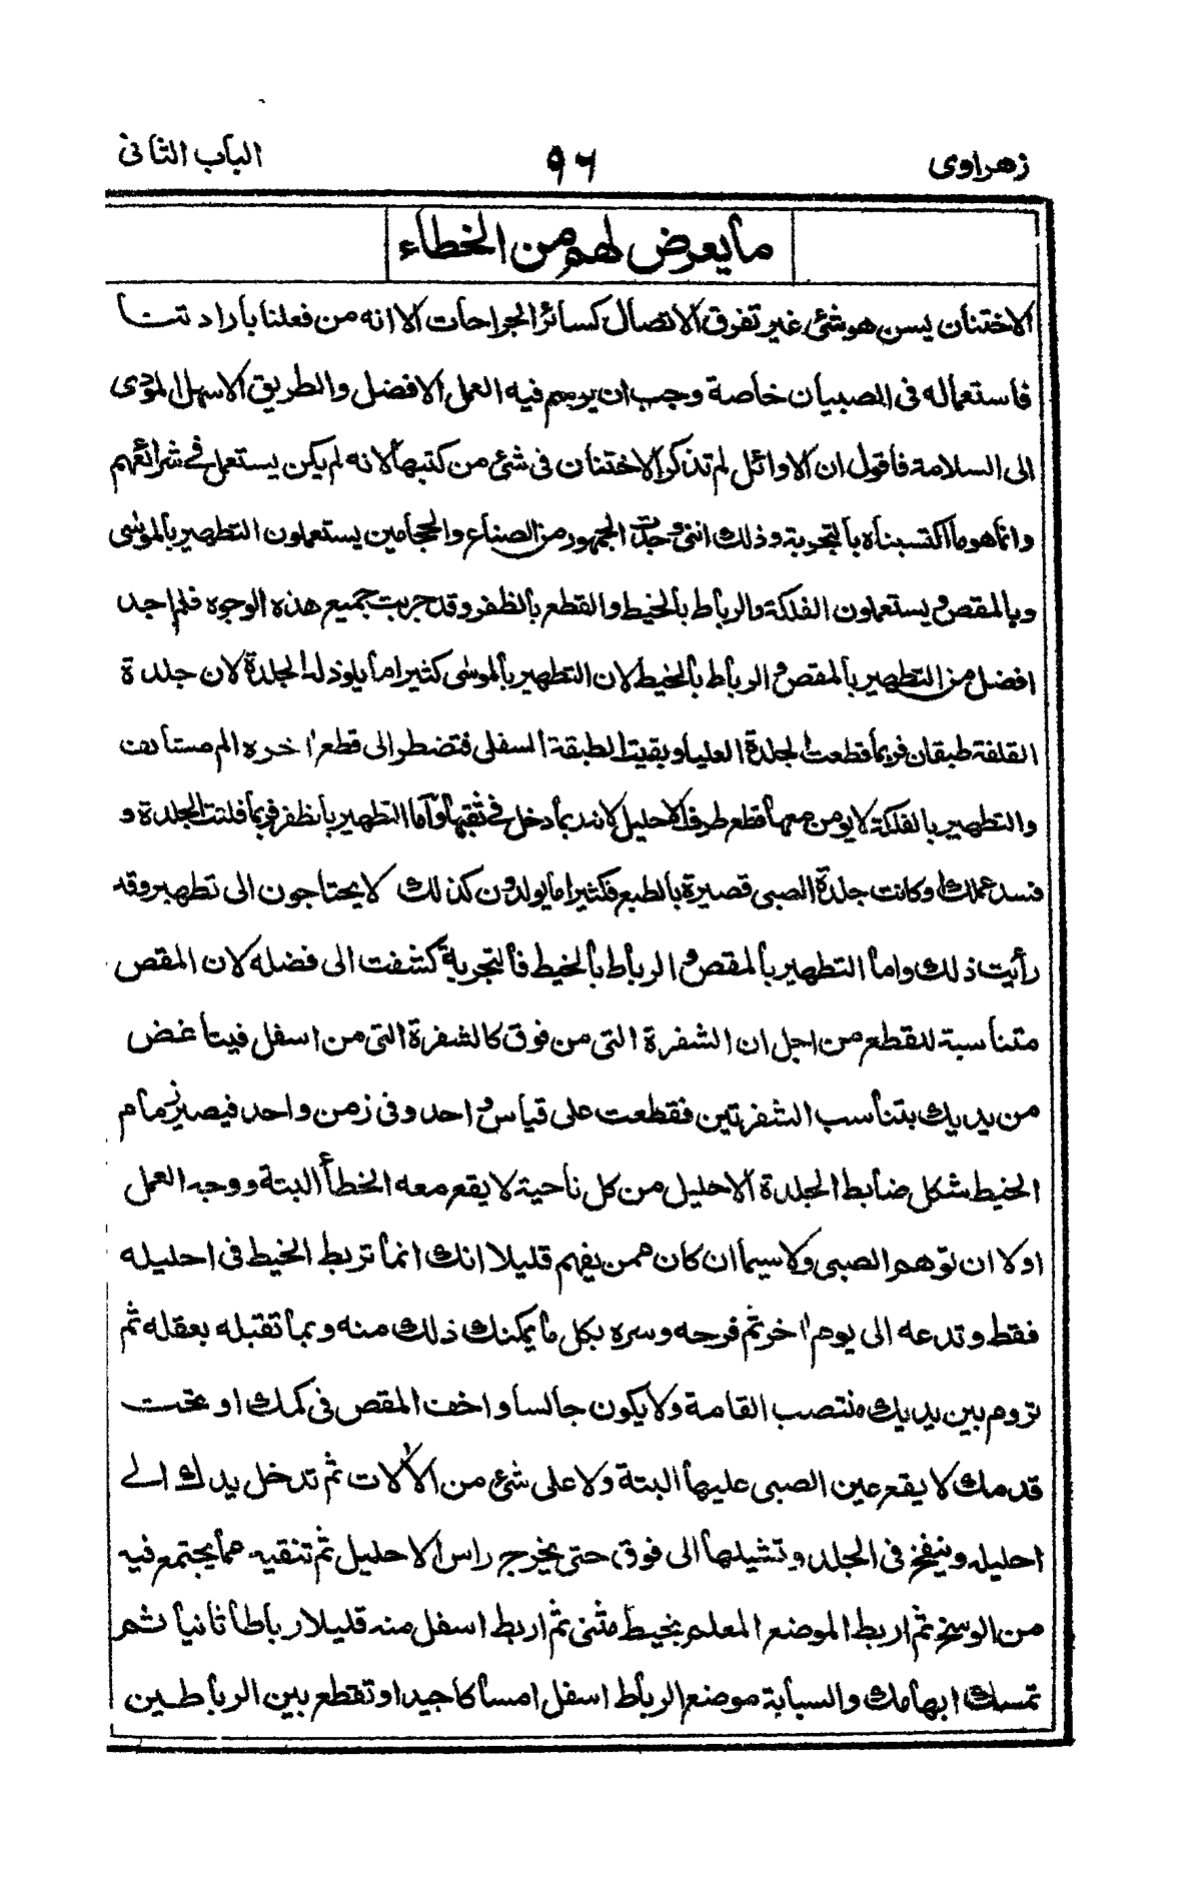 زهراوى
٩٦
الباب الثانى
مايعرض لهم من الخطاء
الاختنان ليس هو شئ غير تفرق الاتصال كسائر الجراحات الا انه من فعلنا بارادتنا
فاستعماله فى الصبيان خاصة وجب ان يرسم فيه العمل الافضل والطريق الاسهل المؤدى
الى السلامة فاقول ان الاوائل لم تذكر الاختنان فى شئ من كتبها لانه لم يكن يستعمل فى شرائعهم
وانما هو ما اكتسبناه بالتجربة وذلك اننى وجدت الجمهور من الصناع والحجامين يستعملون التطهير بالموسى
وبالمقص ويستعملون الفلكة والرباط بالخيط والقطع بالظفر وقد جربت جميع هذه الوجوه فلم اجد
افضل من التطهير بالمقص والرباط بالخيط لان التطهير بالموسى كثيرا ما يلوذ له الجلدة لان جلدة
القلفة طبقان فربما قطعت الجلدة العليا وبقيت الطبقة السفلى فتضطر الى قطع اخر والم مستأنف
والتطهير بالفلكة لا يومن معها قطع طرف الاحليل لانه ربما دخل فى ثقبها واما التطهير بالظفر فربما فلتت الجلدة و
فسد عملك او كانت جلدة الصبى قصيرة بالطبع فكثيرا ما يولدون كذلك لا يحتاجون الى تطهير وقد
رأيت ذلك واما التطهير بالمقص والرباط بالخيط فالتجربة كشفت الى فضله لان المقص
متناسبة للقطع من اجل ان الشفرة التى من فوق كالشفرة التى من اسفل فيتا غض
من يديك بتناسب الشفرتين فقطعت على قياس واحد وفى زمن واحد فيصير زمام
الخيط شكل ضابط الجلدة الاحليل من كل ناحية لا يقع معه الخطأ البتة ووجه العمل
اولا ان توهم الصبى ولا سيما ان كان ممن يفهم قليلا انك انما تربط الخيط فى احليله
فقط وتدعه الى يوم اخر ثم فرحه وسره بكل ما يمكنك ذلك منه وبما تقبله بعقله ثم
تروم بين يديك منتصب القامة ولا يكون جالسا واخف المقص فى كمك او تحت
قدمك لا يقع عين الصبى عليها البتة ولا على شئ من الالات ثم تدخل يدك الى
احليله وينفخ فى الجلد وتشيلها الى فوق حتى يخرج راس الاحليل ثم تنقيه مما يجتمع فيه
من الوسخ ثم اربط الموضع المعلم بخيط مثنى ثم اربط اسفل منه قليلا رباطا ثانيا ثم
تمسك ابهامك والسبابة موضع الرباط اسفل امساكا جيدا وتقطع بين الرباطين